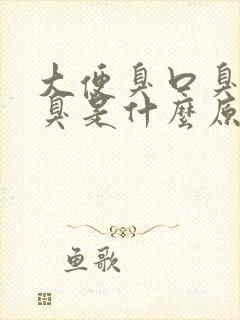 大便臭口臭
臭是什麼原
鱼歌